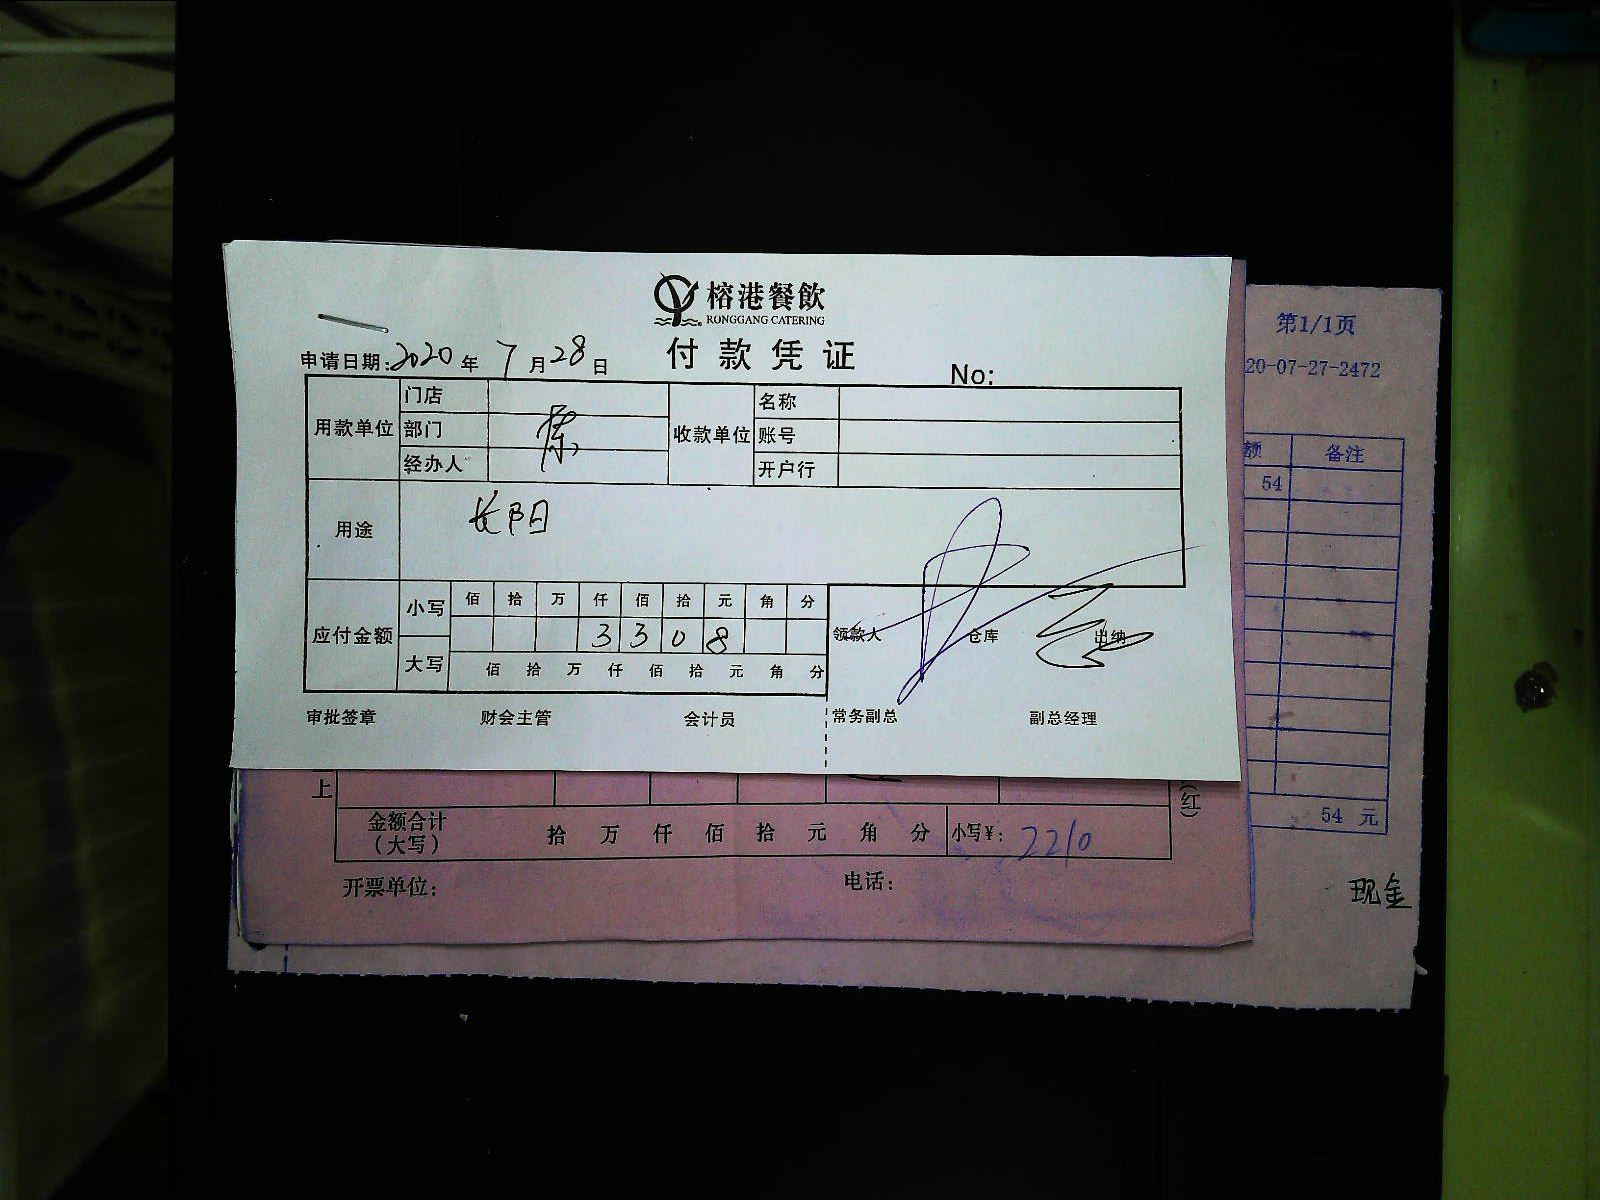 榕港餐飲
RONGGANG CATERING
付款凭证
申请日期:2020年7月28日
No:
用款单位 门店 收款单位 名称
部门 账号
经办人 开户行
用途 长阳
应付金额 小写 佰 拾 万 仟 佰 拾 元 角 分
3 3 0 8
大写 佰 拾 万 仟 佰 拾 元 角 分
领款人 仓库 出纳
审批签章 财会主管 会计员 常务副总 副总经理
上
(红)
金额合计
(大写) 拾 万 仟 佰 拾 元 角 分 小写¥: 2210
开票单位: 电话:
第1/1页
20-07-27-2472
额 备注
54
54 元
现金